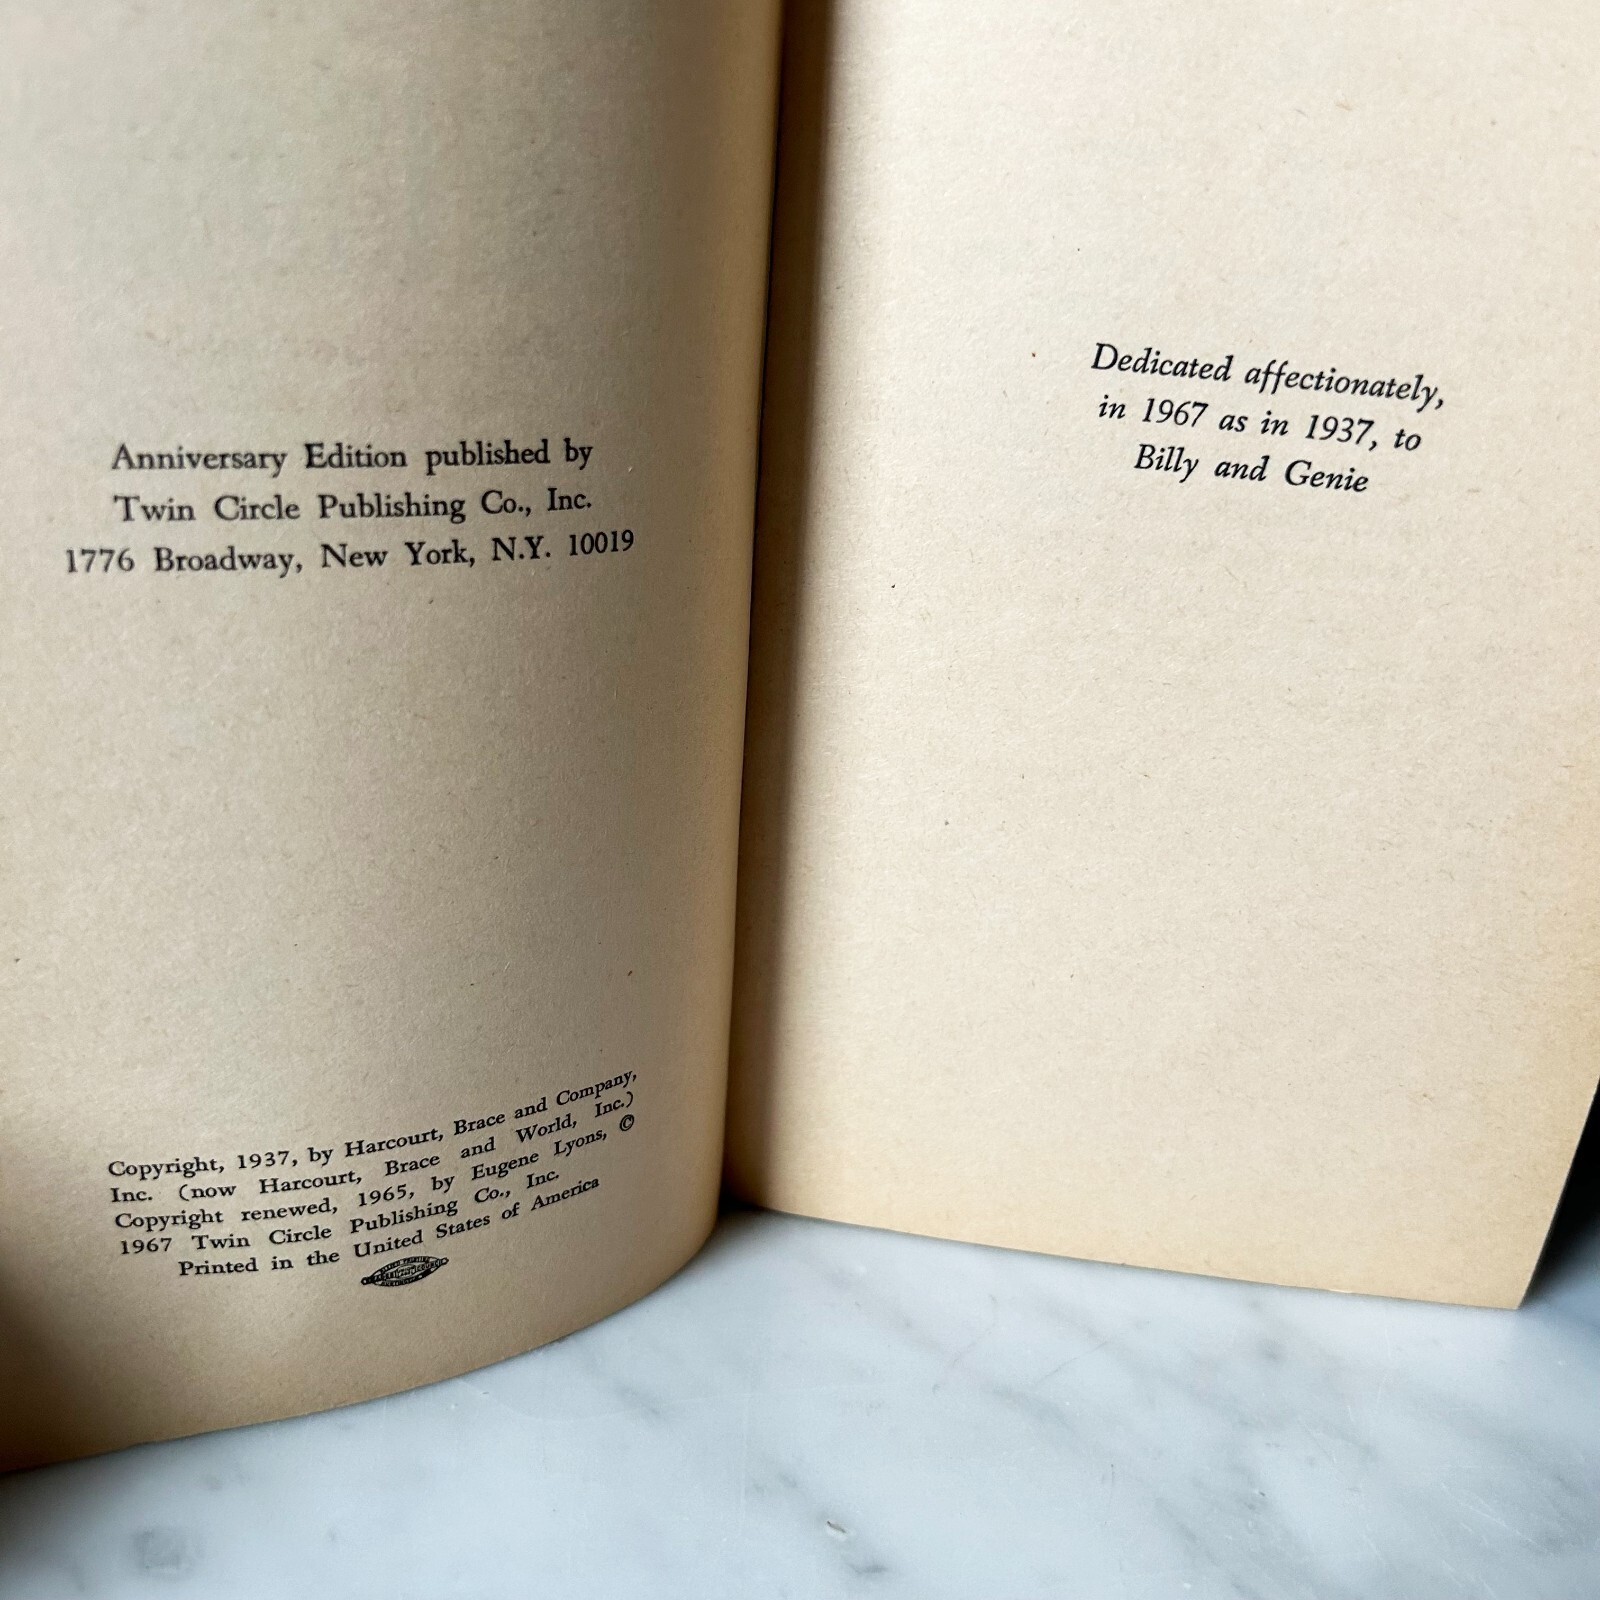 Anniversary Edition published by
Twin Circle Publishing Co., Inc.
1776 Broadway, New York, N.Y. 10019
Copyright, 1937, by Harcourt, Brace and Company,
Inc. (now Harcourt, Brace and World, Inc.)
Copyright renewed, 1965, by Eugene Lyons, ©
1967 Twin Circle Publishing Co., Inc.
Printed in the United States of America
Dedicated affectionately,
in 1967 as in 1937, to
Billy and Genie